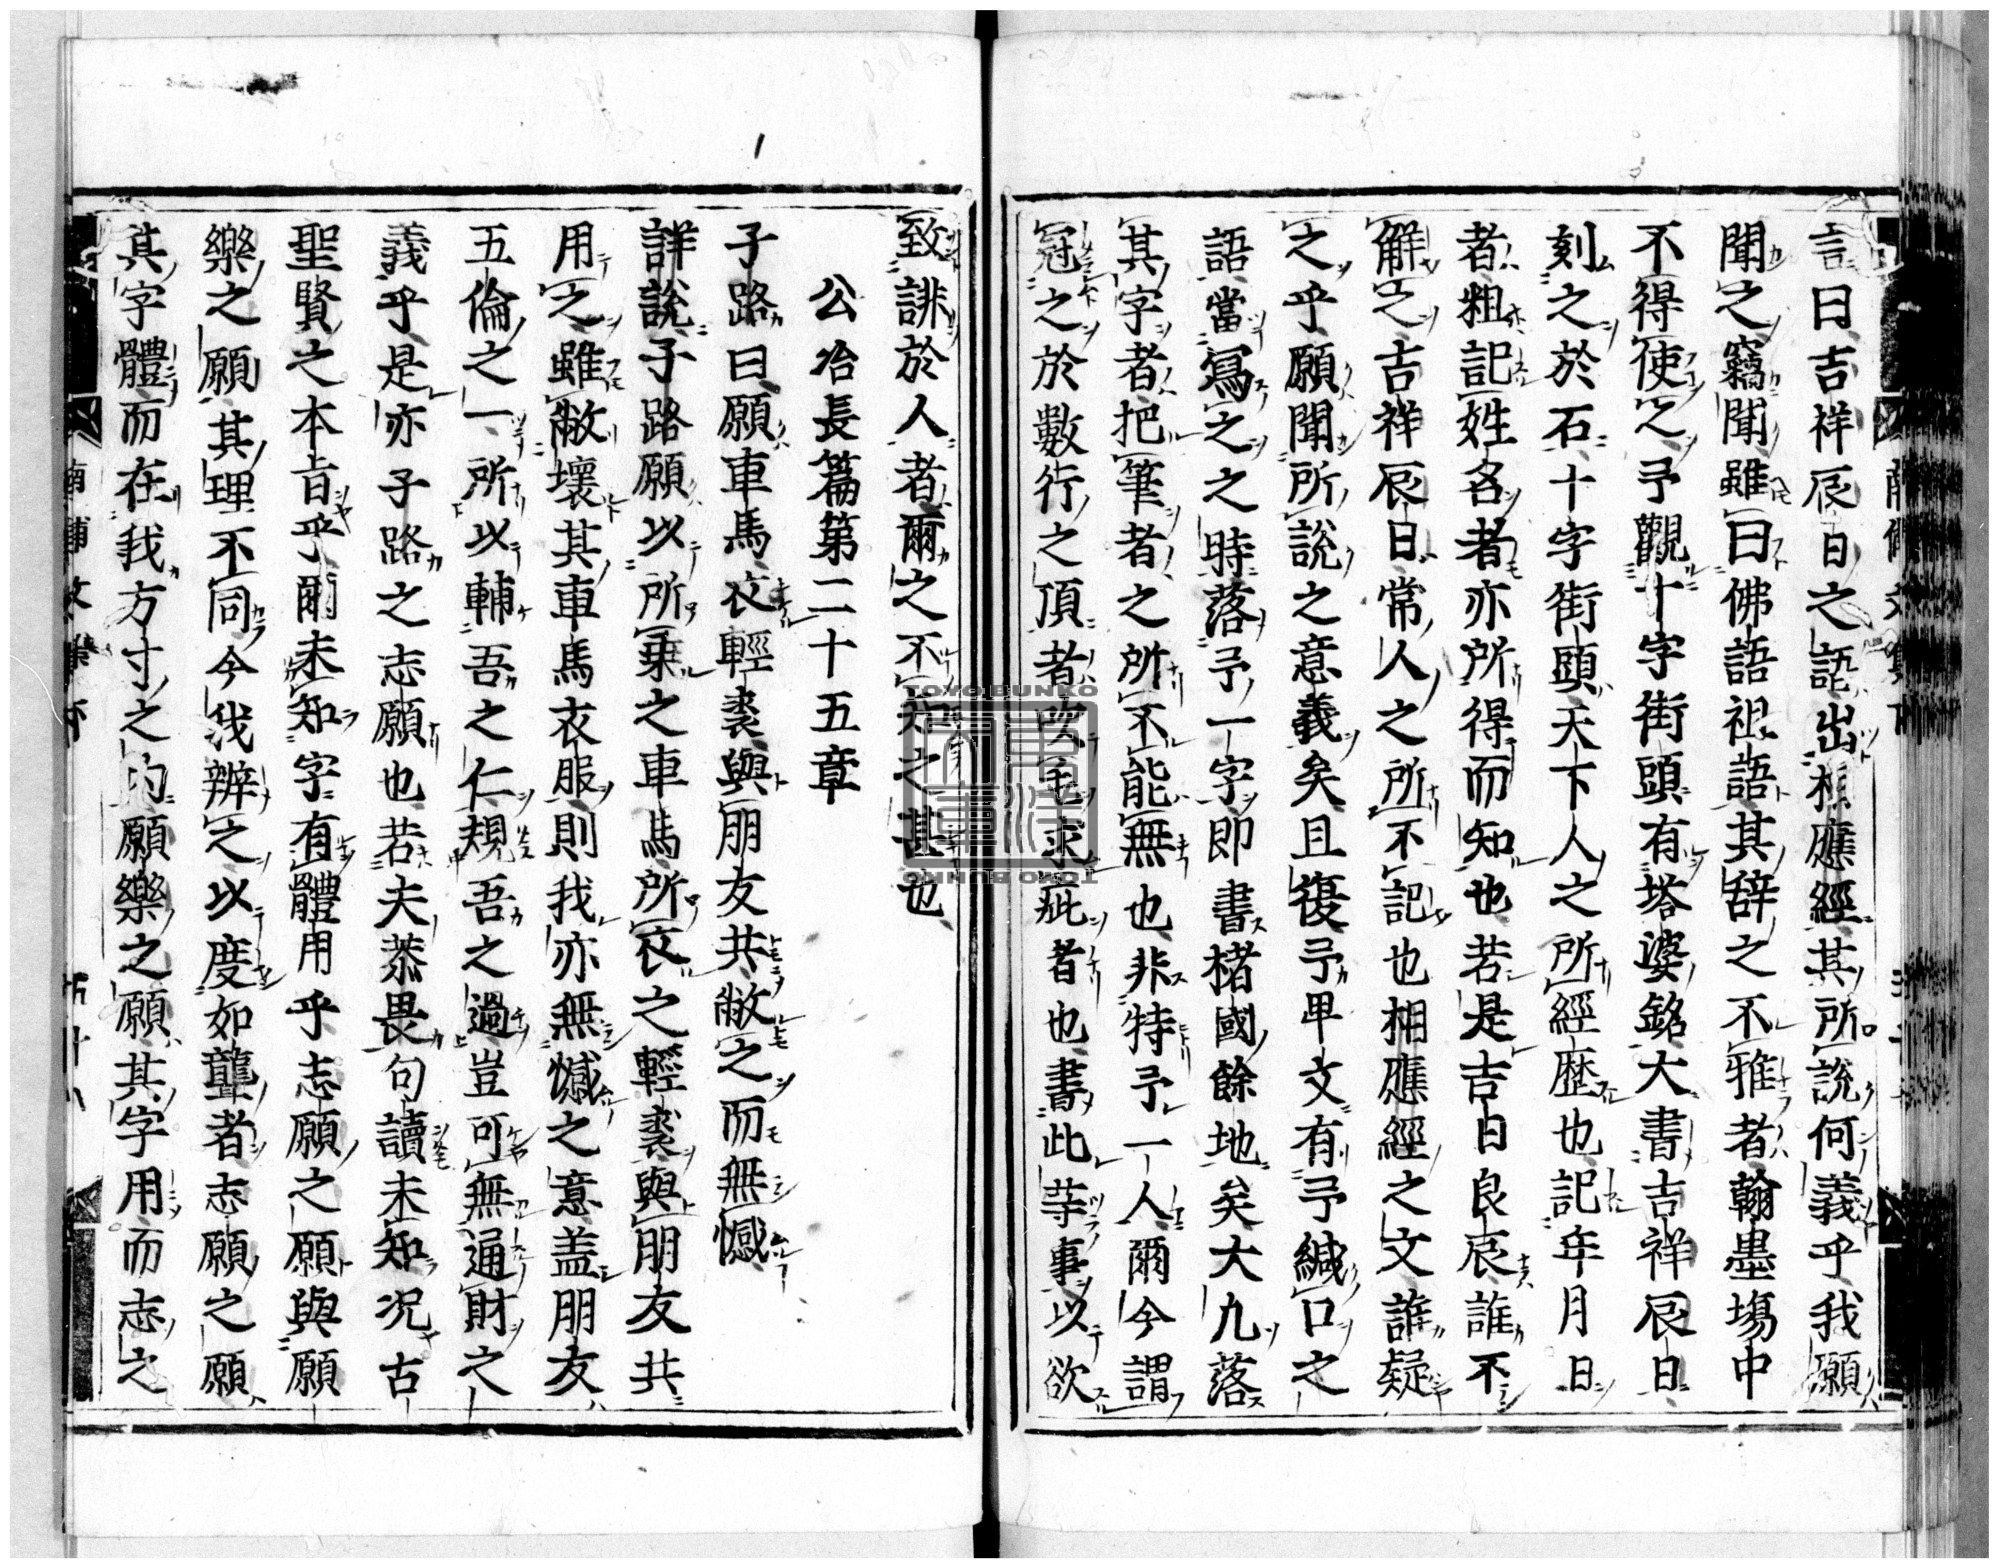 言曰吉祥辰日之語出相應經其所說何義乎我願
聞之竊聞雖曰佛語祖語其辞之不雅者翰墨場中
不得使之予觀十字街頭有塔婆銘大書吉祥辰日
刻之於石十字街頭天下人之所經歷也記年月日
者粗記姓名者亦所得而知也若是吉日良辰誰不
解之吉祥辰日常人之所不記也相應經之文誰疑
之乎願聞所說之意義矣且復予甲文有予緘口之
語當寫之之時落予一字即書楮國餘地矣大九落
其字者把筆者之所不能無也非特予一人爾今謂
冠之於數行之頂者吹毛求疵者也書此等事以欲
致誹於人者爾之不知之甚也
公冶長篇第二十五章
子路曰願車馬衣輕裘與朋友共敝之而無憾
詳說子路願以所乗之車馬所衣之輕裘與朋友共
用之雖敝壞其車馬衣服則我亦無憾之意盖朋友
五倫之一所以輔吾之仁規吾之過豈可無通財之
義乎是亦子路之志願也若夫恭畏句讀未知況古
聖賢之本旨乎爾未知字有體用乎志願之願與願
樂之願其理不同今我辨之以度如聾者志願之願
其字體而在我方寸之的願樂之願其字用而志之